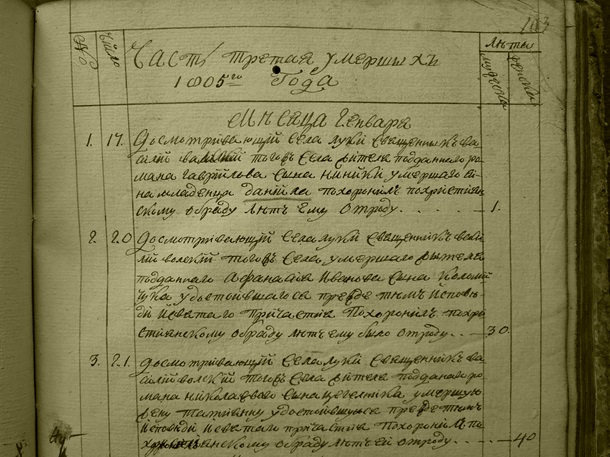 103
No Число Часть третая умершихъ Лѣта
1805го Года мужеска женска
Мнсяца Генваря
1. 17. Досмотривающій села луки Священникъ ва
силій того Села жителя подданаго ро
мана Гаврілова сына умершаго сы
на младенца даніила похоронилъ похристіян
скому обряду лѣтъ ему отроду - 1.
2 20 Досмотривающій Села луки Священникъ васи
лій волскій того Села умершаго жителя
подданаго Афанасія Иванова Сына Колом
удостоившагося прежде тѣмъ исповѣ
ді исвятаго причастія Похоронилъ похри
стіянскому обряду лѣтъ ему было отроду - 30.
3. 21. Досмотривающій Села луки Священникъ ва
силій волскій того Села жителя подданаго ро
мана николаевого Сына умершую
жену татіянну удостоившуюся прежде тѣмъ
исповѣди исвятаго причастія Похоронилъ по
христіянскому обряду лѣтъ ей отроду - 40